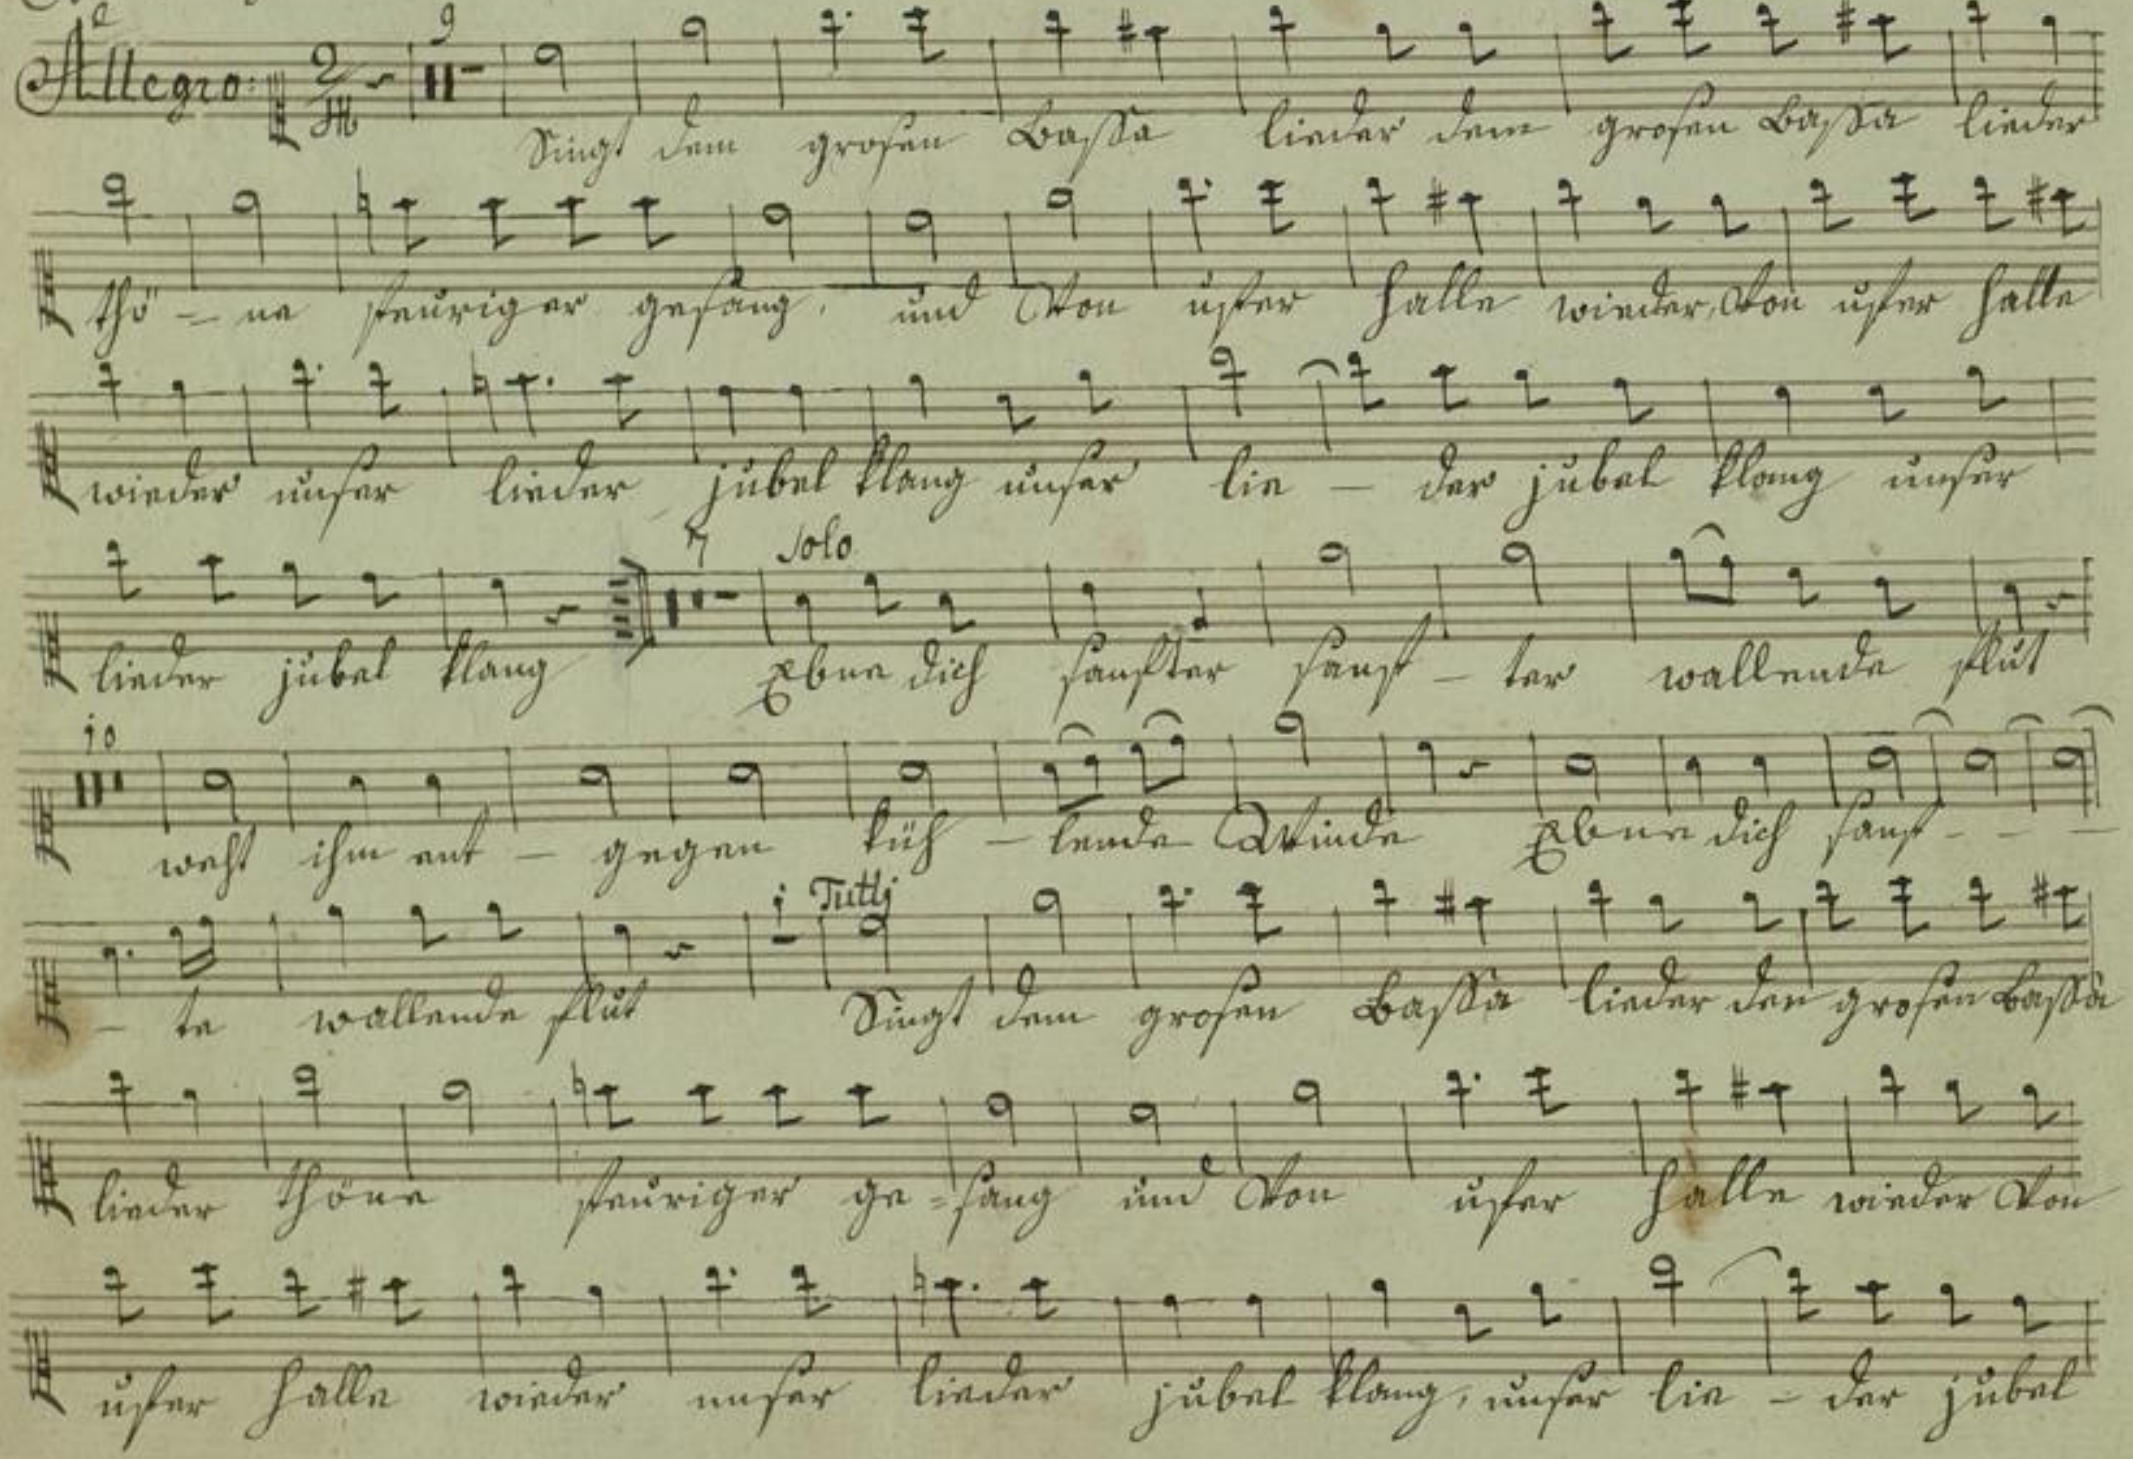 Allegro: 2/4 9
Singt dem großen Bassa lieder dem großen Bassa lieder
thö - ne feuriger gesang, und Von ufer halle wieder, Von ufer halle
wieder unser lieder jubel klang unser lie - der jubel klang unser
7 Solo
lieder jubel klang Ebne dich sanfter sanf - ter wallende flut
10
weht ihm ent - gegen küh - lende Winde Ebne dich sanf - - -
1 Tutti
- te wallende flut Singt dem großen Bassa lieder den großen Bassa
lieder thöne feuriger ge = sang und Von ufer halle wieder Von
ufer halle wieder unser lieder jubel klang, unser lie - der jubel